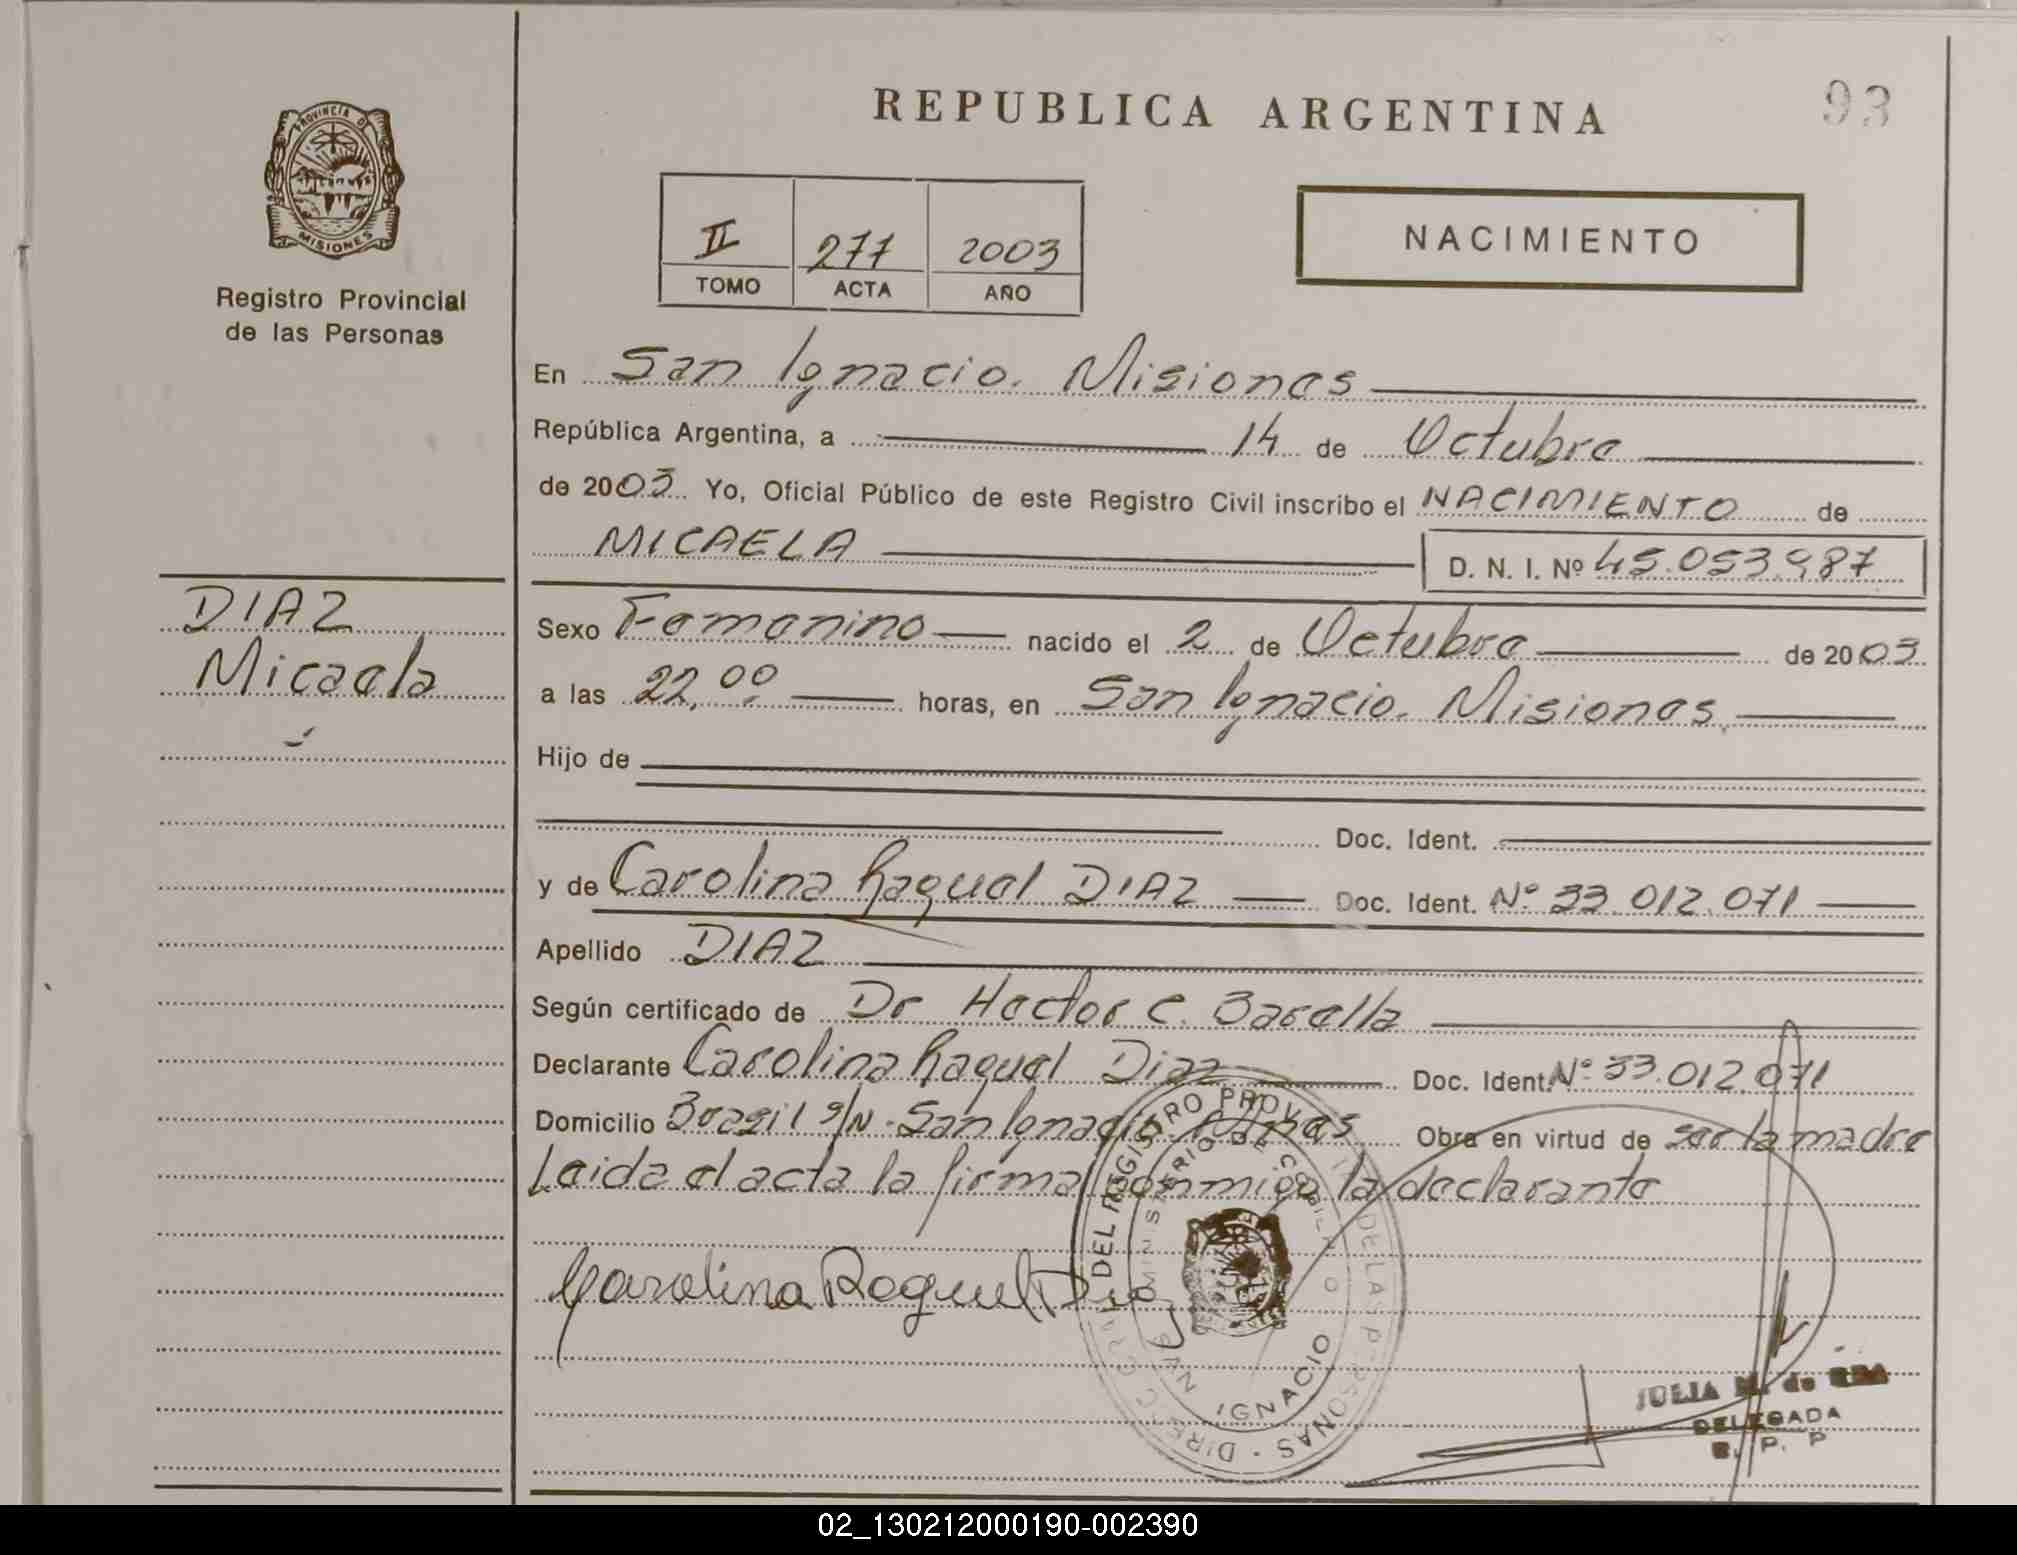 PROVINCIA DE
MISIONES
Registro Provincial
de las Personas
DIAZ
Micaela
REPUBLICA ARGENTINA
93
II 277 2003
TOMO ACTA AÑO
NACIMIENTO
En San Ignacio. Misiones
República Argentina, a 14 de Octubre
de 2003 Yo, Oficial Público de este Registro Civil inscribo el NACIMIENTO de
MICAELA D. N. I. Nº 45.053.987
Sexo Femenino nacido el 2 de Octubre de 2003
a las 22,00 horas, en San Ignacio. Misiones
Hijo de
Doc. Ident.
y de Carolina Raquel DIAZ Doc. Ident. Nº 33.012.071
Apellido DIAZ
Según certificado de Dr Hector C. Barella
Declarante Carolina Raquel Diaz Doc. Ident. Nº 33.012.071
Domicilio Brasil s/N. San Ignacio. Mnes Obra en virtud de ser la madre
Leida el acta la firma conmigo la declarante
Carolina Raquel Diaz
DEL REGISTRO PROV. DE LAS PERSONAS · DIREC
MINISTERIO DE GOBIERNO
IGNACIO
JULIA de
DELEGADA
R. P. P
02_130212000190-002390